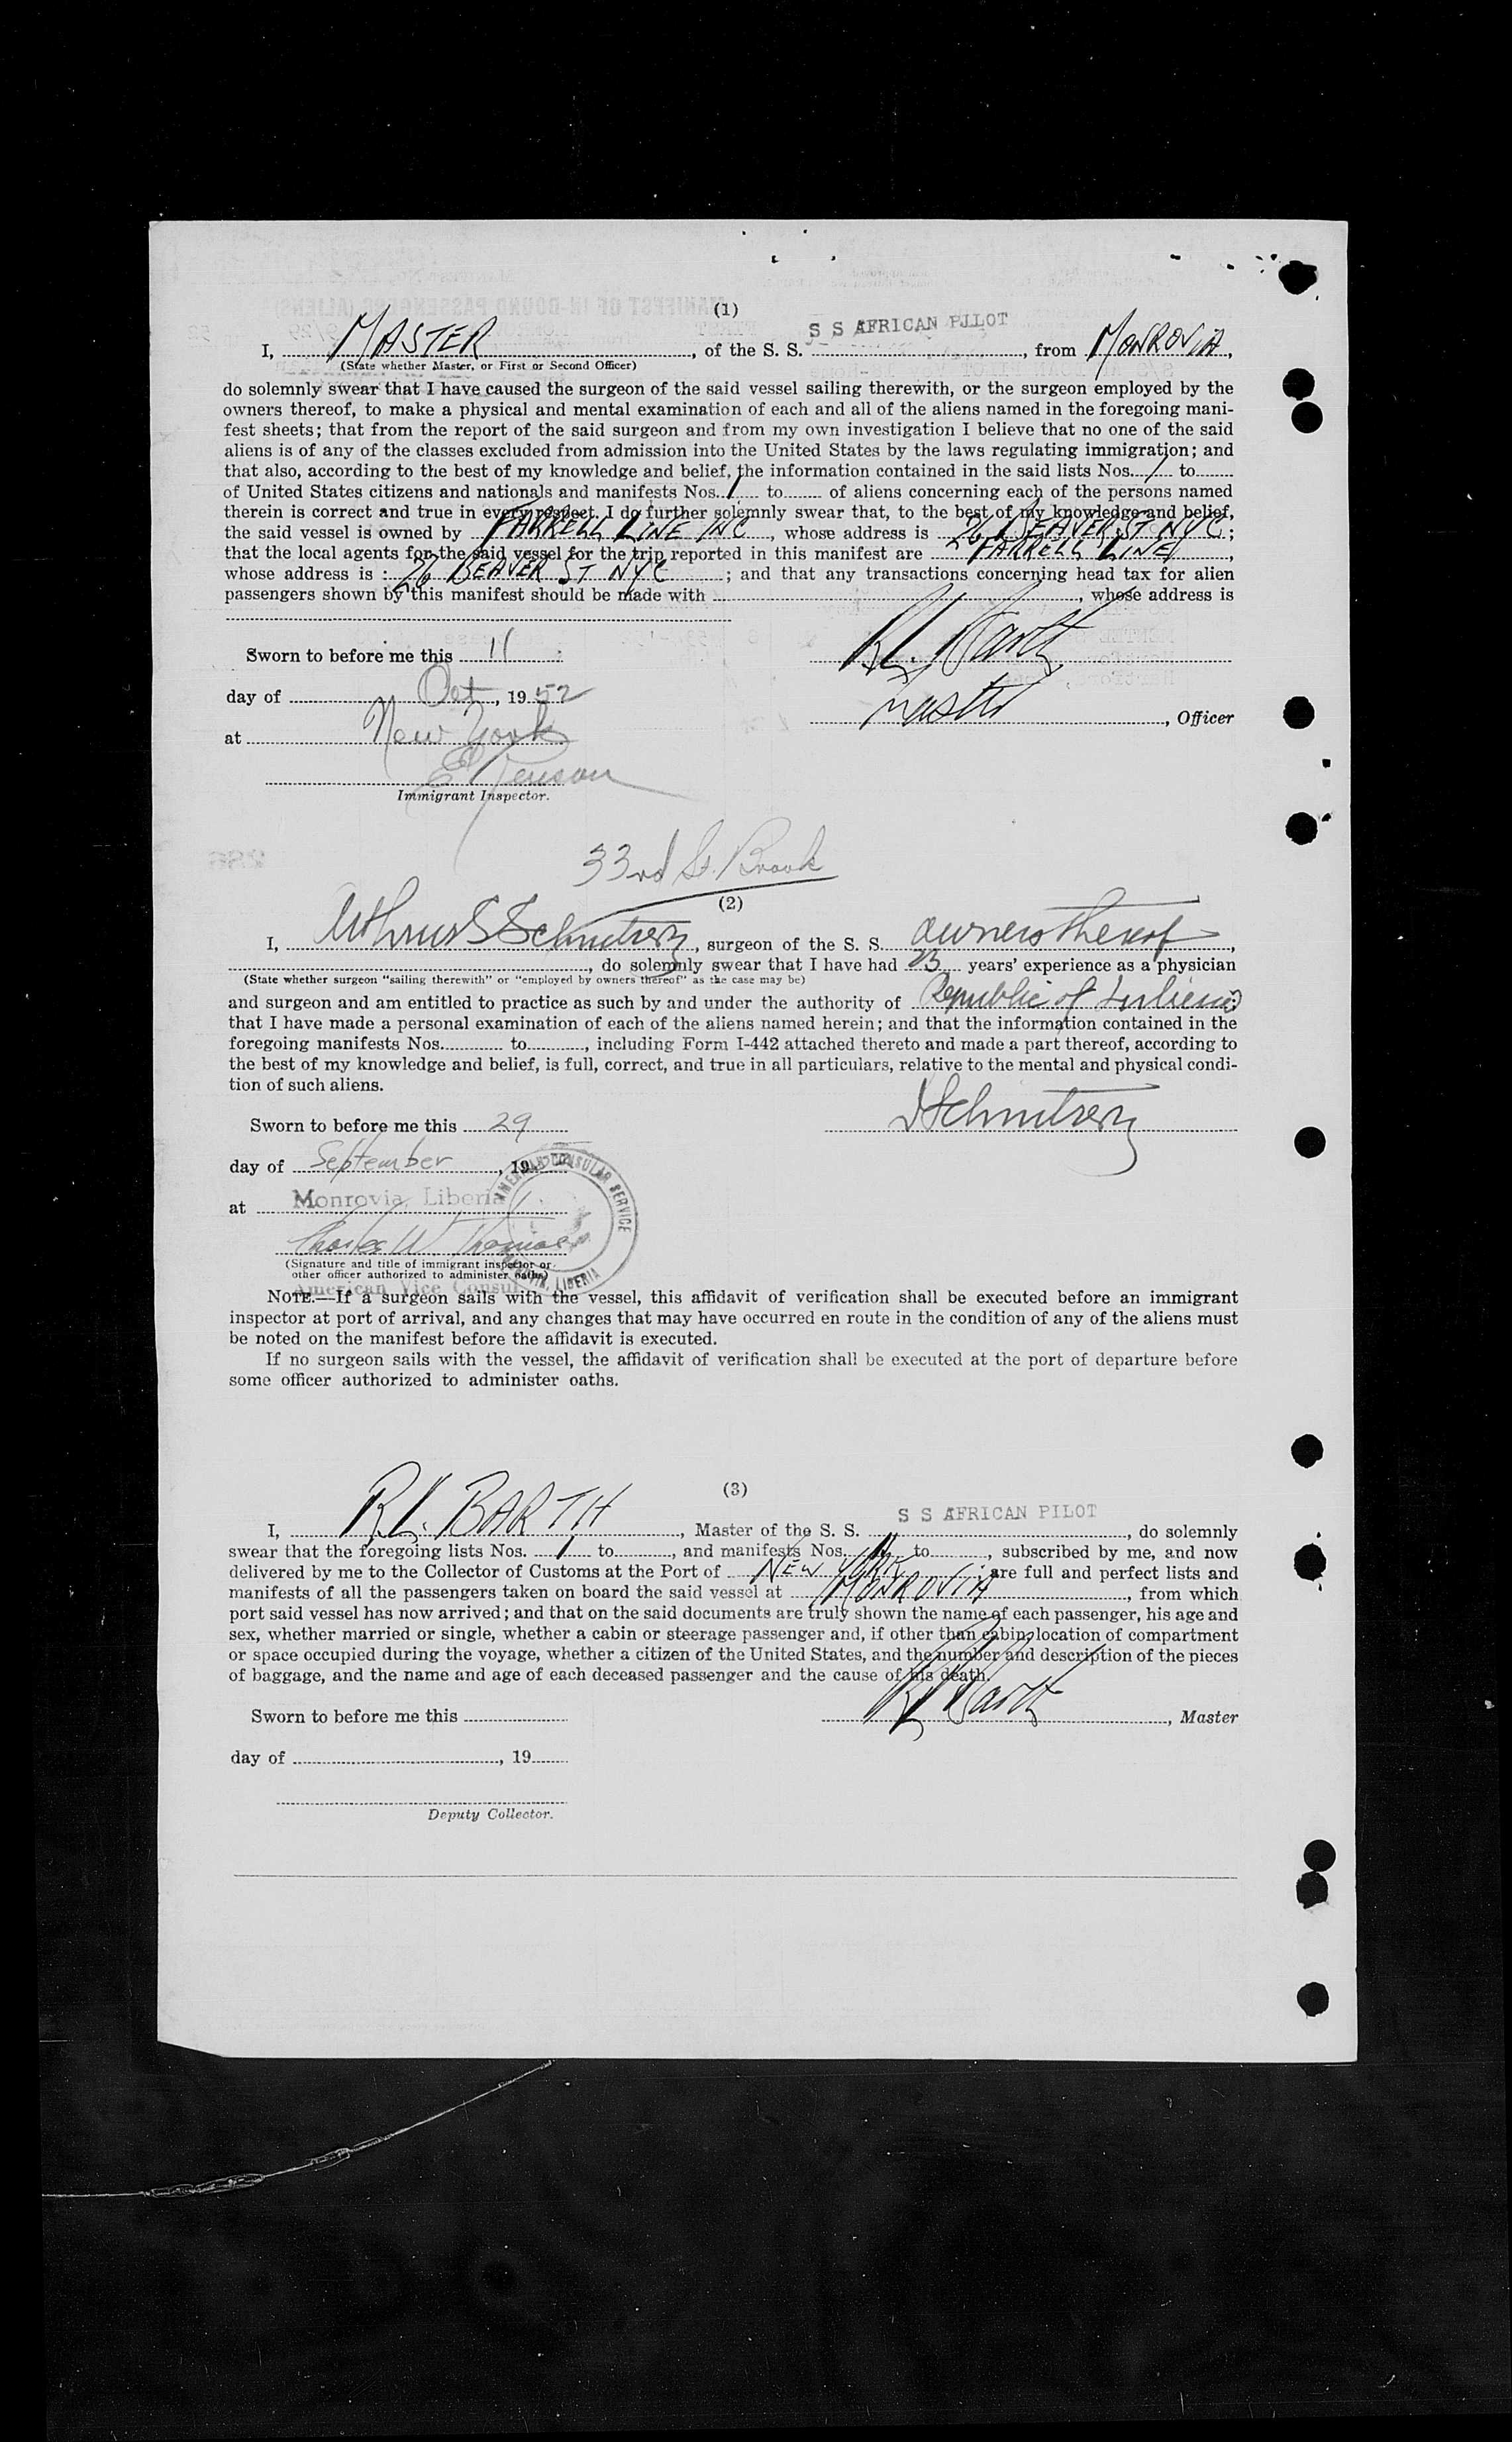 (1)
I, MASTER, of the S. S. S S AFRICAN PILOT, from MONROVIA,
(State whether Master, or First or Second Officer)
do solemnly swear that I have caused the surgeon of the said vessel sailing therewith, or the surgeon employed by the
owners thereof, to make a physical and mental examination of each and all of the aliens named in the foregoing mani-
fest sheets; that from the report of the said surgeon and from my own investigation I believe that no one of the said
aliens is of any of the classes excluded from admission into the United States by the laws regulating immigration; and
that also, according to the best of my knowledge and belief, the information contained in the said lists Nos. 1 to
of United States citizens and nationals and manifests Nos. 1 to of aliens concerning each of the persons named
therein is correct and true in every respect. I do further solemnly swear that, to the best of my knowledge and belief,
the said vessel is owned by FARRELL LINE INC, whose address is 26 BEAVER ST NYC;
that the local agents for the said vessel for the trip reported in this manifest are FARRELL LINE,
whose address is : 26 BEAVER ST NYC; and that any transactions concerning head tax for alien
passengers shown by this manifest should be made with , whose address is
Sworn to before me this 11 R L. Barth
day of Oct, 19 52 Master, Officer
at New York
Immigrant Inspector.
33rd St. Brook
(2)
I, Arthur S Schnitzer, surgeon of the S. S. owners thereof,
, do solemnly swear that I have had 23 years' experience as a physician
(State whether surgeon "sailing therewith" or "employed by owners thereof" as the case may be)
and surgeon and am entitled to practice as such by and under the authority of Republic of
that I have made a personal examination of each of the aliens named herein; and that the information contained in the
foregoing manifests Nos. to , including Form I-442 attached thereto and made a part thereof, according to
the best of my knowledge and belief, is full, correct, and true in all particulars, relative to the mental and physical condi-
tion of such aliens.
Sworn to before me this 29 Schnitzer
day of September, 19
at Monrovia, Liberia
Charles W Thomas
AMERICAN CONSULAR SERVICE
MONROVIA, LIBERIA
(Signature and title of immigrant inspector or
other officer authorized to administer oaths)
American Vice Consul
NOTE.—If a surgeon sails with the vessel, this affidavit of verification shall be executed before an immigrant
inspector at port of arrival, and any changes that may have occurred en route in the condition of any of the aliens must
be noted on the manifest before the affidavit is executed.
If no surgeon sails with the vessel, the affidavit of verification shall be executed at the port of departure before
some officer authorized to administer oaths.
(3)
I, R.L. BARTH, Master of the S. S. S S AFRICAN PILOT, do solemnly
swear that the foregoing lists Nos. 1 to , and manifests Nos. 1 to , subscribed by me, and now
delivered by me to the Collector of Customs at the Port of NEW YORK, are full and perfect lists and
manifests of all the passengers taken on board the said vessel at MONROVIA, from which
port said vessel has now arrived; and that on the said documents are truly shown the name of each passenger, his age and
sex, whether married or single, whether a cabin or steerage passenger and, if other than cabin, location of compartment
or space occupied during the voyage, whether a citizen of the United States, and the number and description of the pieces
of baggage, and the name and age of each deceased passenger and the cause of his death.
Sworn to before me this R L Barth, Master
day of , 19
Deputy Collector.